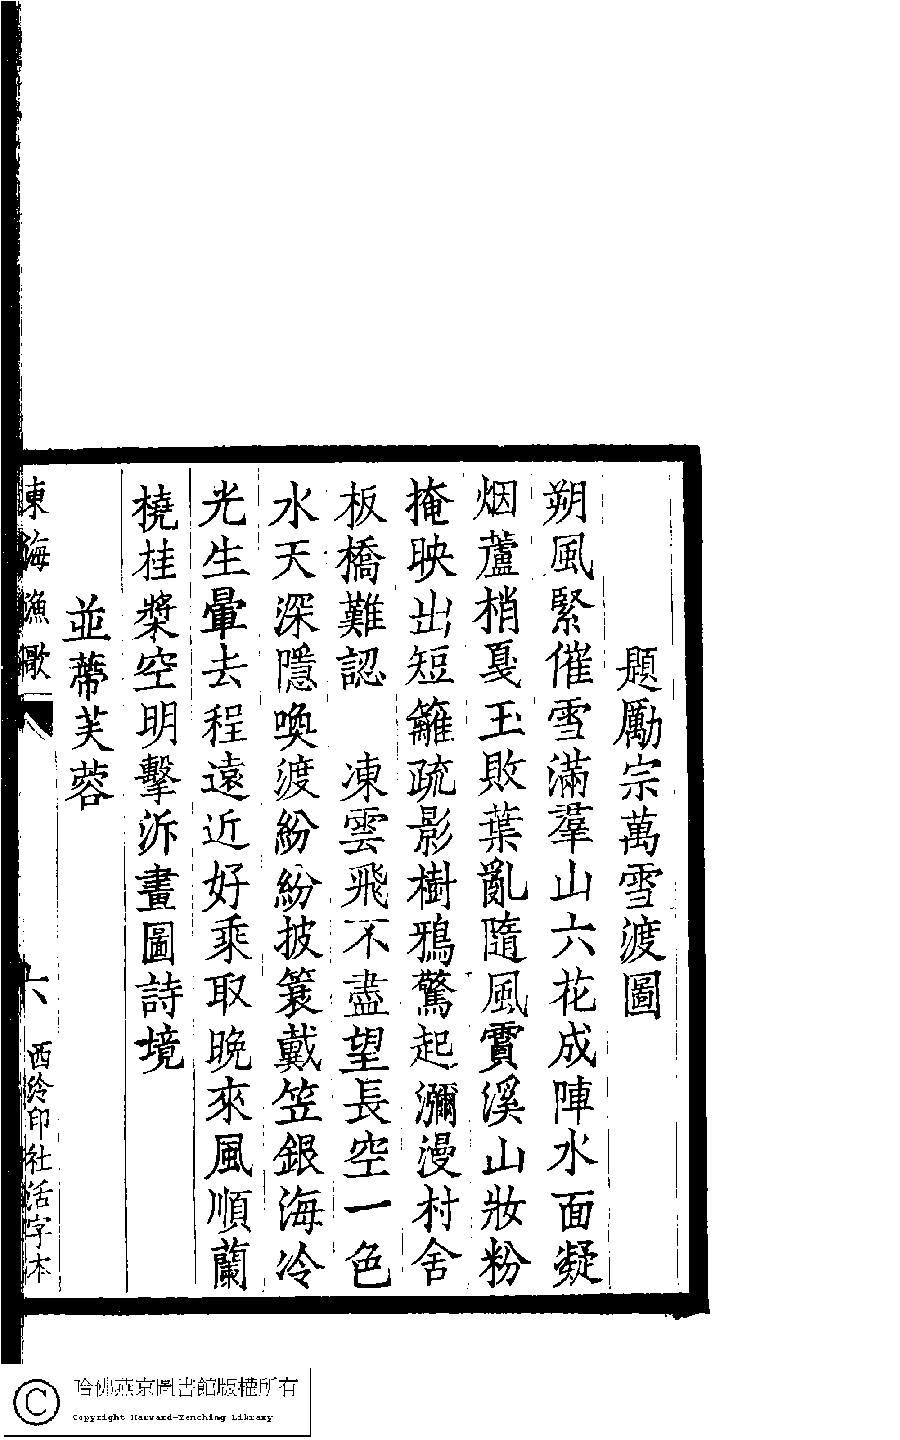 題勵宗萬雪渡圖
朔風緊催雪滿羣山六花成陣水面凝
烟蘆梢戞玉敗葉亂隨風賈溪山妝粉
掩映出短籬疏影樹鴉驚起瀰漫村舍
板橋難認　凍雲飛不盡望長空一色
水天深隱喚渡紛紛披簑戴笠銀海冷
光生暈去程遠近好乘取晚來風順蘭
橈桂槳空明擊泝畫圖詩境
並蔕芙蓉
東海漁歌
六
西泠印社活字本
哈佛燕京圖書館版權所有
Copyright Harvard-Yenching Library